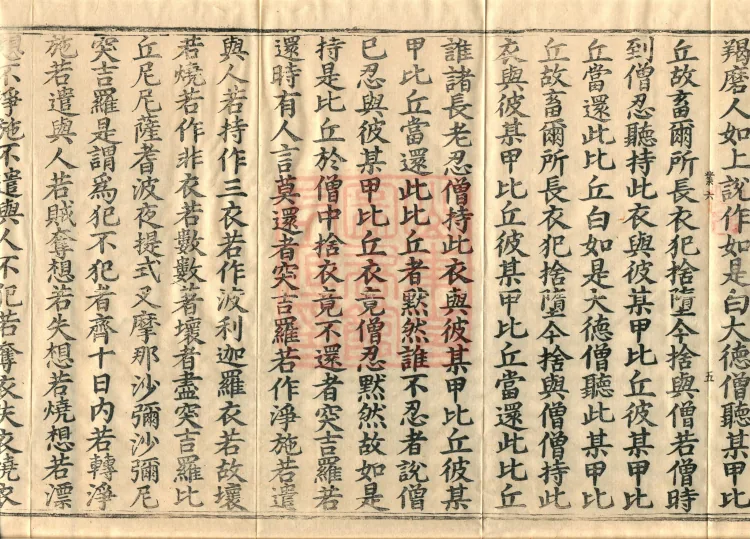 羯磨人如上說作如是白大德僧聽某甲比
丘故畜爾所長衣犯捨墮今捨與僧若僧時
到僧忍聽持此衣與彼某甲比丘彼某甲比
丘當還此比丘白如是大德僧聽此某甲比
丘故畜爾所長衣犯捨墮今捨與僧僧持此
衣與彼某甲比丘彼某甲比丘當還此比丘
誰諸長老忍僧持此衣與彼某甲比丘彼某
甲比丘當還此比丘者默然誰不忍者說僧
已忍與彼某甲比丘衣竟僧忍默然故如是
持是比丘於僧中捨衣竟不還者突吉羅若
還時有人言莫還者突吉羅若作淨施若遣
與人若持作三衣若作波利迦羅衣若故壞
若燒若作非衣若數數著壞者盡突吉羅比
丘尼尼薩耆波夜提式叉摩那沙彌沙彌尼
突吉羅是謂為犯不犯者齊十日內若轉淨
施若遣與人若賊奪想若失想若燒想若漂
想不淨施不遣與人不犯若奪衣失衣燒衣
業六
五